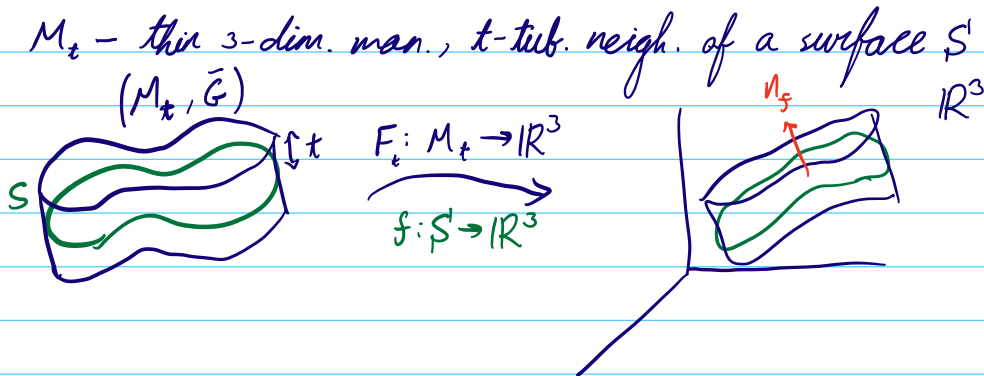 M_t - thin 3-dim. man., t-tub. neigh. of a surface S
(M_t, G̅)
n_f
ℝ³
t
F_t: M_t → ℝ³
S
f: S → ℝ³